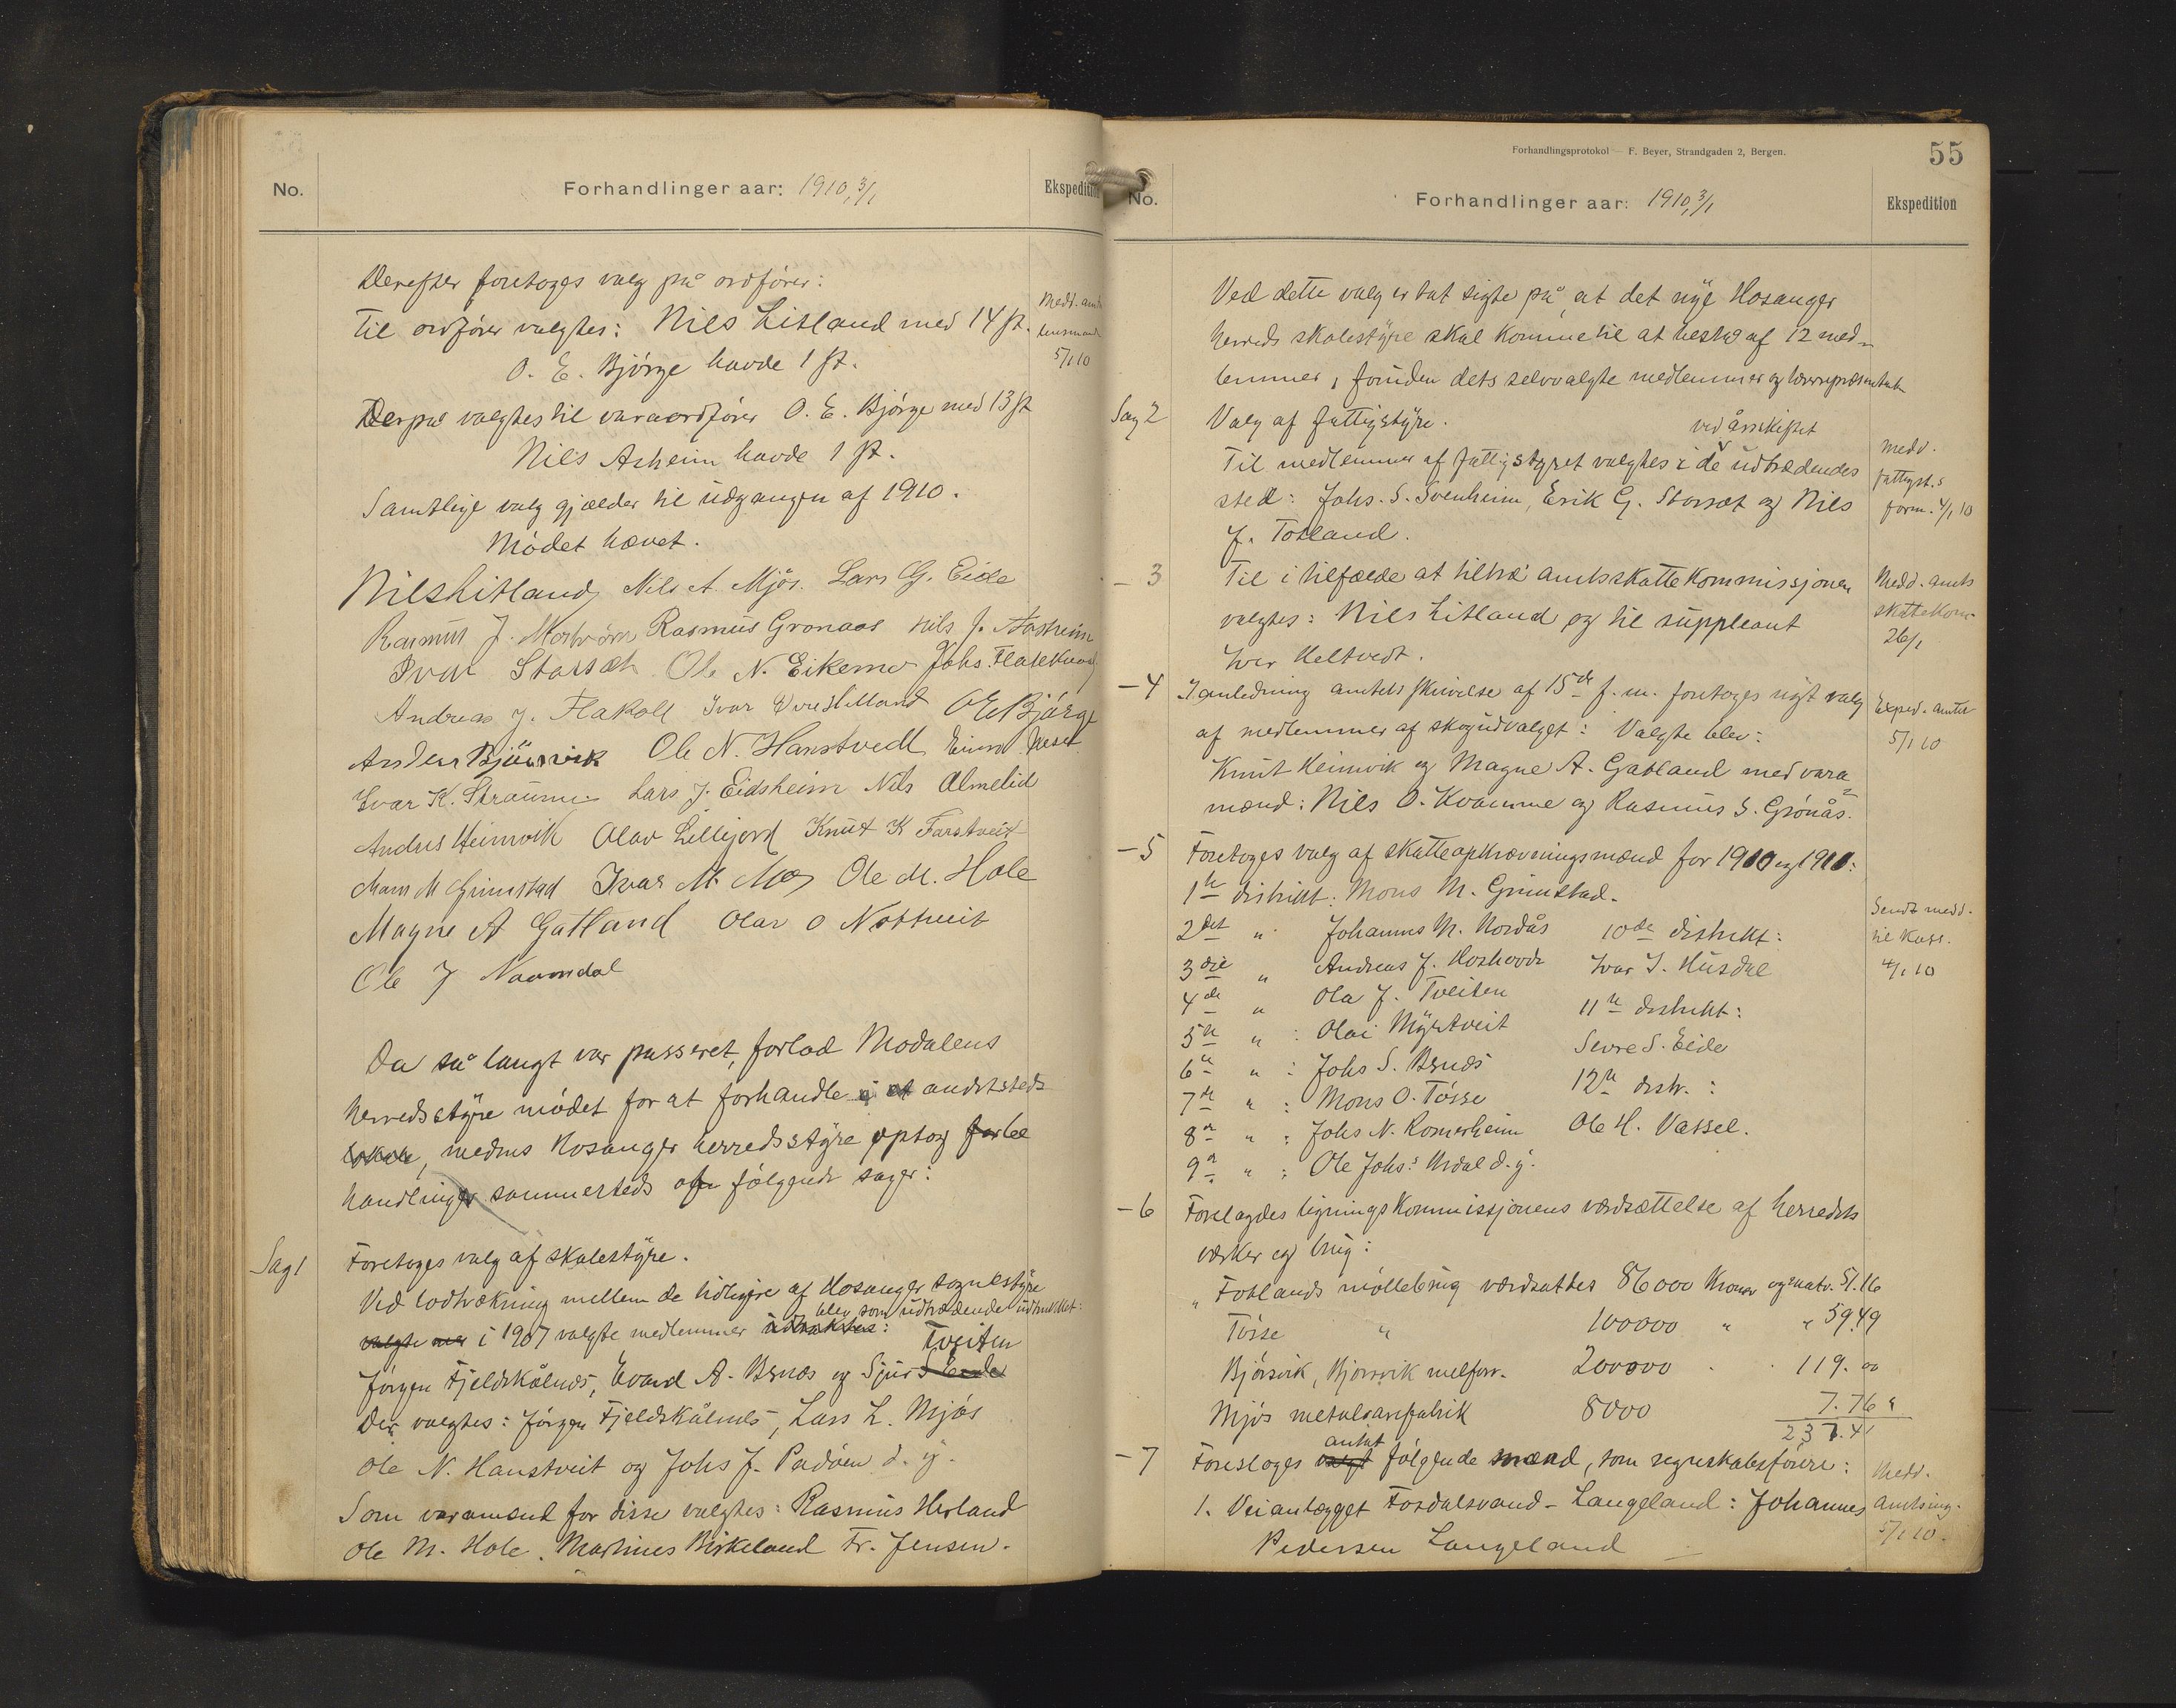 No.
Forhandlinger aar: 1910, 3/1
Ekspedition
Derefter foretoges valg på ordfører:
Til ordfører valgtes: Nils Litland med 14 st.
O. E. Bjørge havde 1 st.
Medd. amt
lensmand
5/1 10
Derpå valgtes til varaordfører O. E. Bjørge med 13 st
Nils Asheim havde 1 st.
Samtlige valg gjælder til udgangen af 1910.
Mødet hævet.
Nils Litland Nils A. Mjøs. Lars G. Eide
Rasmus J. Rasmus Gronaas Nils J. Aasheim
Ivar Storsæt Ole N. Eikemo Johs. Flatekvaal
Andreas J. Flakoll Ivar OE Bjørge
Anders Bjørsvik Ole N. Hanstvedt Neset
Ivar K. Straume Lars J. Eidsheim Nils Almelid
Andres Heimvik Olav Lillejord Knut K Farstveit
Mons M Grimstad Ivar M. Mo Ole M. Hole
Magne A Gatland Olav O Nottveit
Ole J Naamdal
Da så langt var passeret, forlod Modalens
herredsstyre mødet for at forhandle i et andetsteds
lokale, medens Hosanger herredsstyre optog forbe
handlinger sammesteds om følgende sager:
Sag 1
Foretoges valg af skolestyre.
Ved lodtrækning mellem de tidligere af Hosanger sognestyre
blev som udtrædende udtrukket:
valgte i 1907 valgte medlemmer udtraktes:
Tveiten
Jørgen Fjeldskålnes, Evard A. Bynes og Sjur S Eide
Der valgtes: Jørgen Fjeldskålnes, Lars L. Mjøs
Ole N. Hanstveit og Johs J. Padøen d. y.
Som varamænd for disse valgtes: Rasmus Herland
Ole M. Hole. Martinus Birkeland Fr. Jensen.
Forhandlingsprotokol — F. Beyer, Strandgaden 2, Bergen.
55
No.
Forhandlinger aar: 1910, 3/1
Ekspedition
Ved dette valg er tat sigte på, at det nye Hosanger
herreds skolestyre skal komme til at bestå af 12 med-
lemmer, foruden dets selvvalgte medlemmer og lærerrepræsentant
Sag 2
Valg af fattigstyre.
ved årsskiftet
Til medlemmer af fattigstyret valgtes i de udtrædendes
sted: Johs. S. Svenheim, Erik G. Storsæt og Nils
J. Totland.
medd.
fattigst.s
form. 4/1 10
- 3
Til i tilfælde at tiltræ amtsskattekommissjonen
valgtes: Nils Litland og til suppleant
Iver Heltvedt.
Medd. amts
skattekom.
26/1
- 4
I anledning amtets skrivelse af 15de f. m. foretoges nyt valg
af medlemmer af skogudvalget: Valgte blev:
Knut Heimvik og Magne A. Gatland med vara
mænd: Nils O. Kvamme og Rasmus S. Grønås.
Exped. amtet
5/1 10
- 5
Foretoges valg af skatteopkrævningsmænd for 1910 og 1911:
1te distrikt: Mons M. Grimstad.
2det " Johannes M. Nordås
10de distrikt:
3die " Andreas J.
Ivar I. Husdal
4de " Ola J. Tveiten
11te distrikt:
5te " : Olai Myrtveit
Sevre S. Eide
6te " : Johs S. Bynes
12te distr. :
7de " : Mons O. Tøsse
8de " : Johs N. Romerheim
Ole H. Vassel.
9de " : Ole Johs: Urdal d. y.
Sendt medd.
til Kass.
4/1 10
- 6
Forelagdes ligningskommissjonens værdsættelse af herredets
værker og brug:
" Fotlands møllebrug værdsattes 86000 kroner og matr. 51.16
Tøsse " 100000 " " 59.49
Bjørsvik, Bjørsvik melforr. 200000 119. 00
Mjøs metalvarefabrik 8000 7.76
237.41
- 7
antat
Foresloges valgt følgende mænd, som regnskabsførere:
1. Veianlægget Fosdalsvand - Langeland: Johannes
Pedersen Langeland
Medd.
amtsing.
5/1 10.